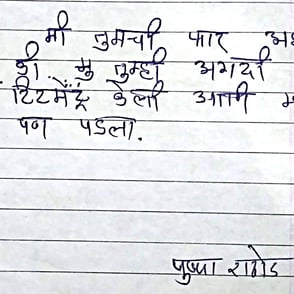 मी तुमची फार अभ
की मु तुम्ही अगदी
टिटमेंट केली आणी म
पण पडला.
पुष्पा राठोड